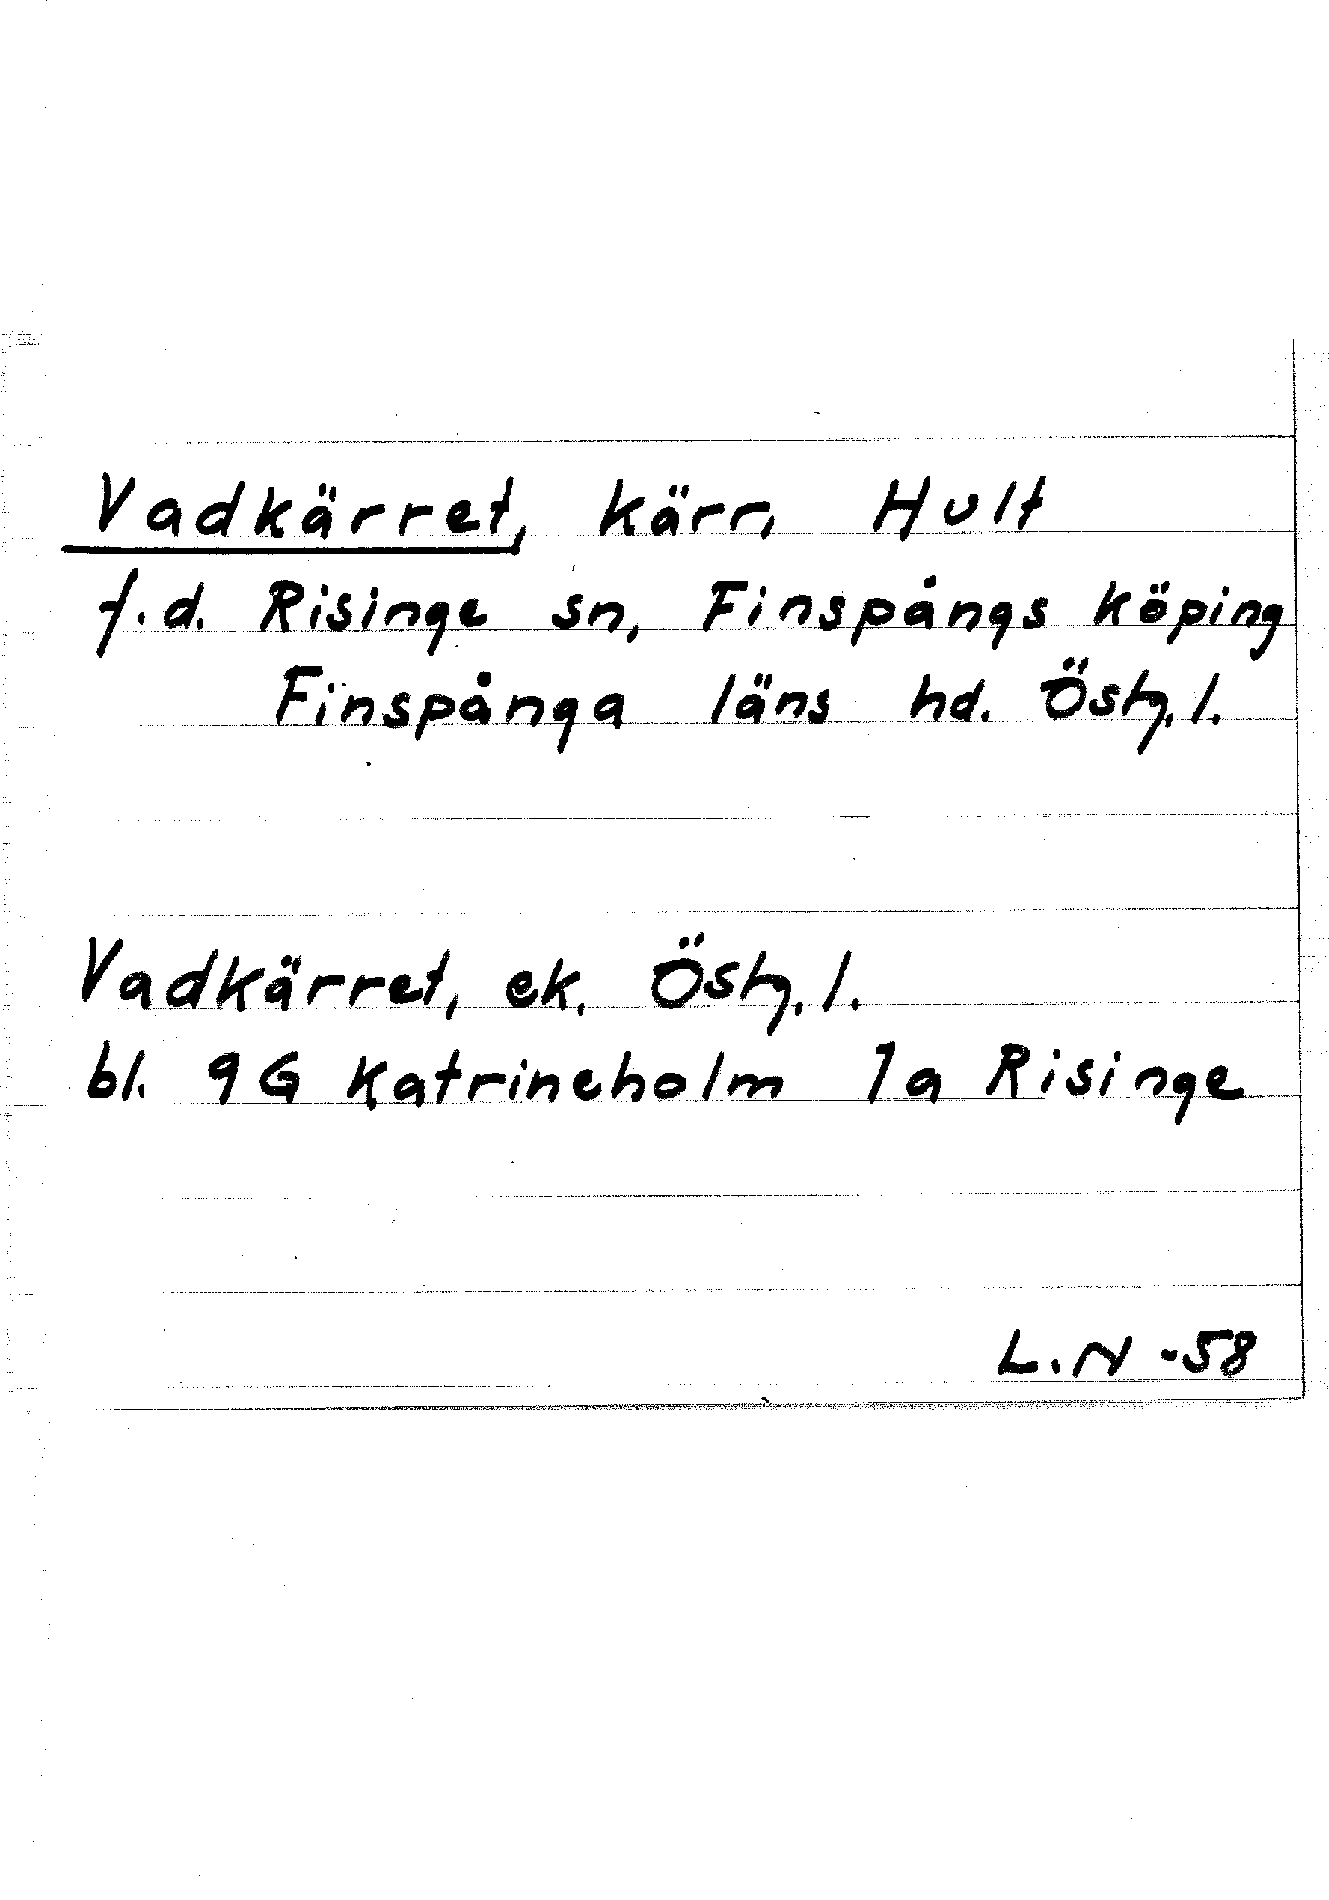 Vadkärret, kärr, Hult
f.d. Risinge sn, Finspångs köping
Finspånga läns hd. Östg. l.
Vadkärret, ek. Östg. l.
bl. 9G Katrineholm 1a Risinge
L.N -58